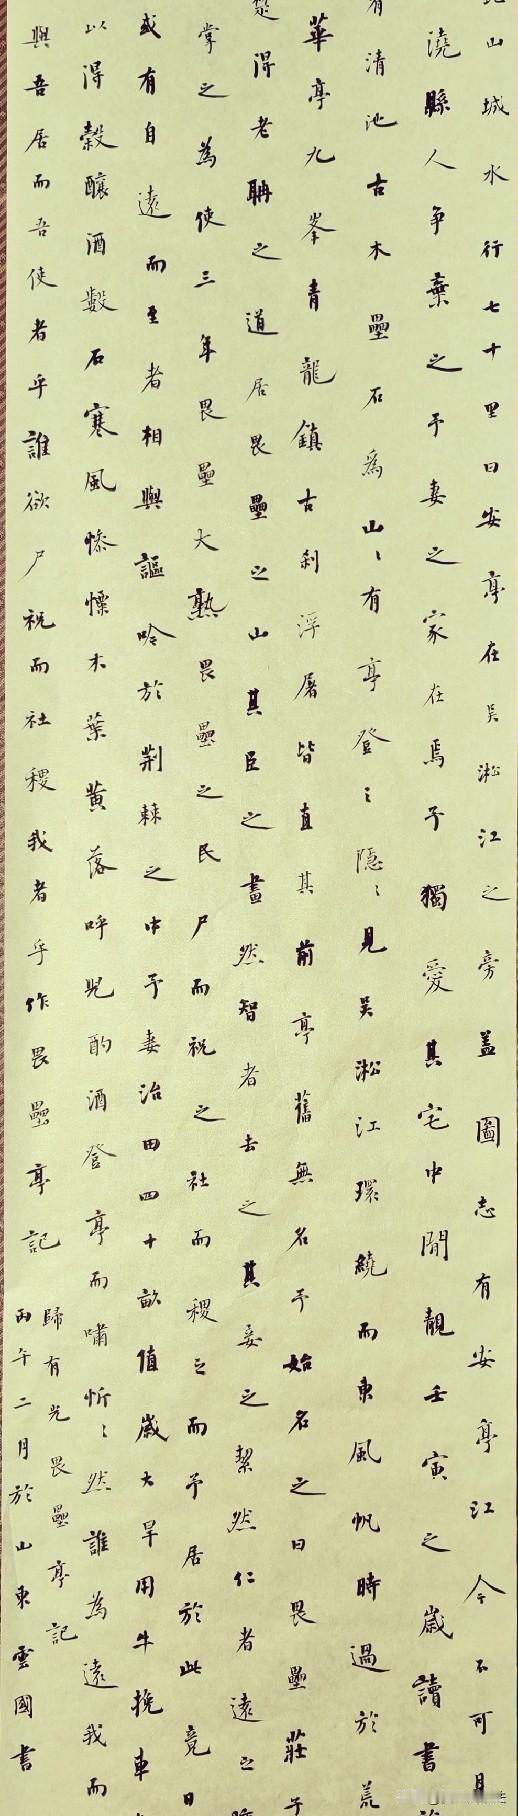 山城水行七十里曰安亭在吴淞江之旁盖圖志有安亭江今不可見
澆縣人争棄之予妻之家在焉予獨愛其宅中閒靚壬寅之歲讀書
有清池古木壘石為山〻有亭登〻隱〻見吴淞江環繞而東風帆時過於荒
華亭九峯青龍鎮古刹浮屠皆直其前亭舊無名予始名之曰畏壘莊子
得老聃之道居畏壘之山其臣之畫然智者去之其妾之絜然仁者遠之
掌之為使三年畏壘大熟畏壘之民尸而祝之社而稷之而予居於此竟日
或有自遠而至者相與謳吟於荆棘之中予妻治田四十畝值歲大旱用牛挽車
以得穀釀酒數石寒風慘慄木葉黄落呼兒酌酒登亭而嘯忻〻然誰為遠我而
與吾居而吾使者乎誰欲尸祝而社稷我者乎作畏壘亭記
歸有光畏壘亭記
丙午二月於山東雲國書